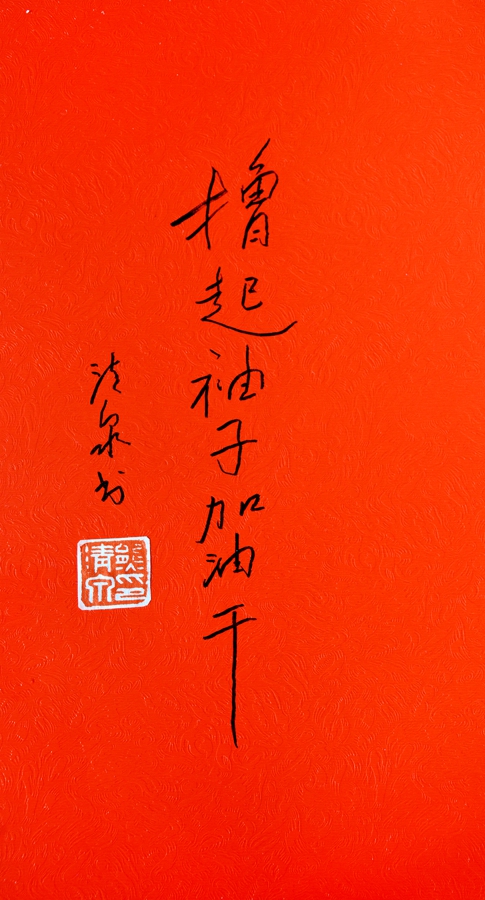 撸起袖子加油干
清泉书